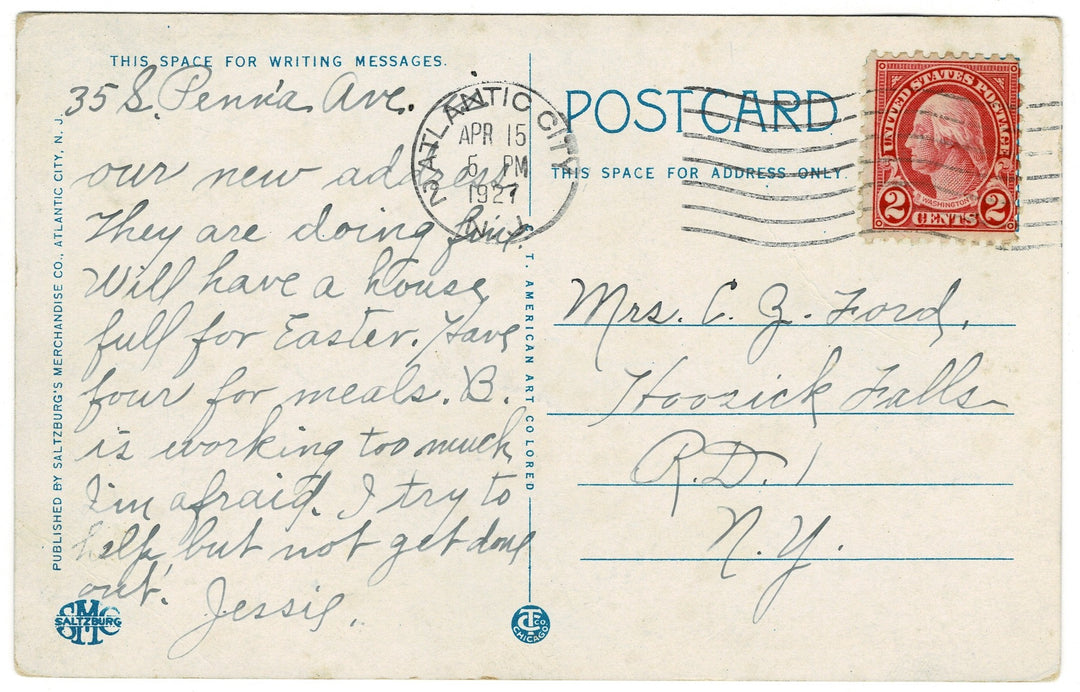 THIS SPACE FOR WRITING MESSAGES.
35 S. Penn'a Ave.
our new address.
They are doing fine.
Will have a house
full for Easter. Have
four for meals. B.
is working too much
I'm afraid. I try to
help but not get done
out.
Jessie.
PUBLISHED BY SALTZBURG'S MERCHANDISE CO., ATLANTIC CITY, N. J.
SMC
SALTZBURG
ATLANTIC CITY
APR 15
5 PM
1927
N.J.
C. T. AMERICAN ART COLORED
CT CO
CHICAGO
POSTCARD
THIS SPACE FOR ADDRESS ONLY.
UNITED STATES POSTAGE
WASHINGTON
2 CENTS 2
Mrs. C. Z. Ford,
Hoosick Falls
R.D. 1
N.Y.